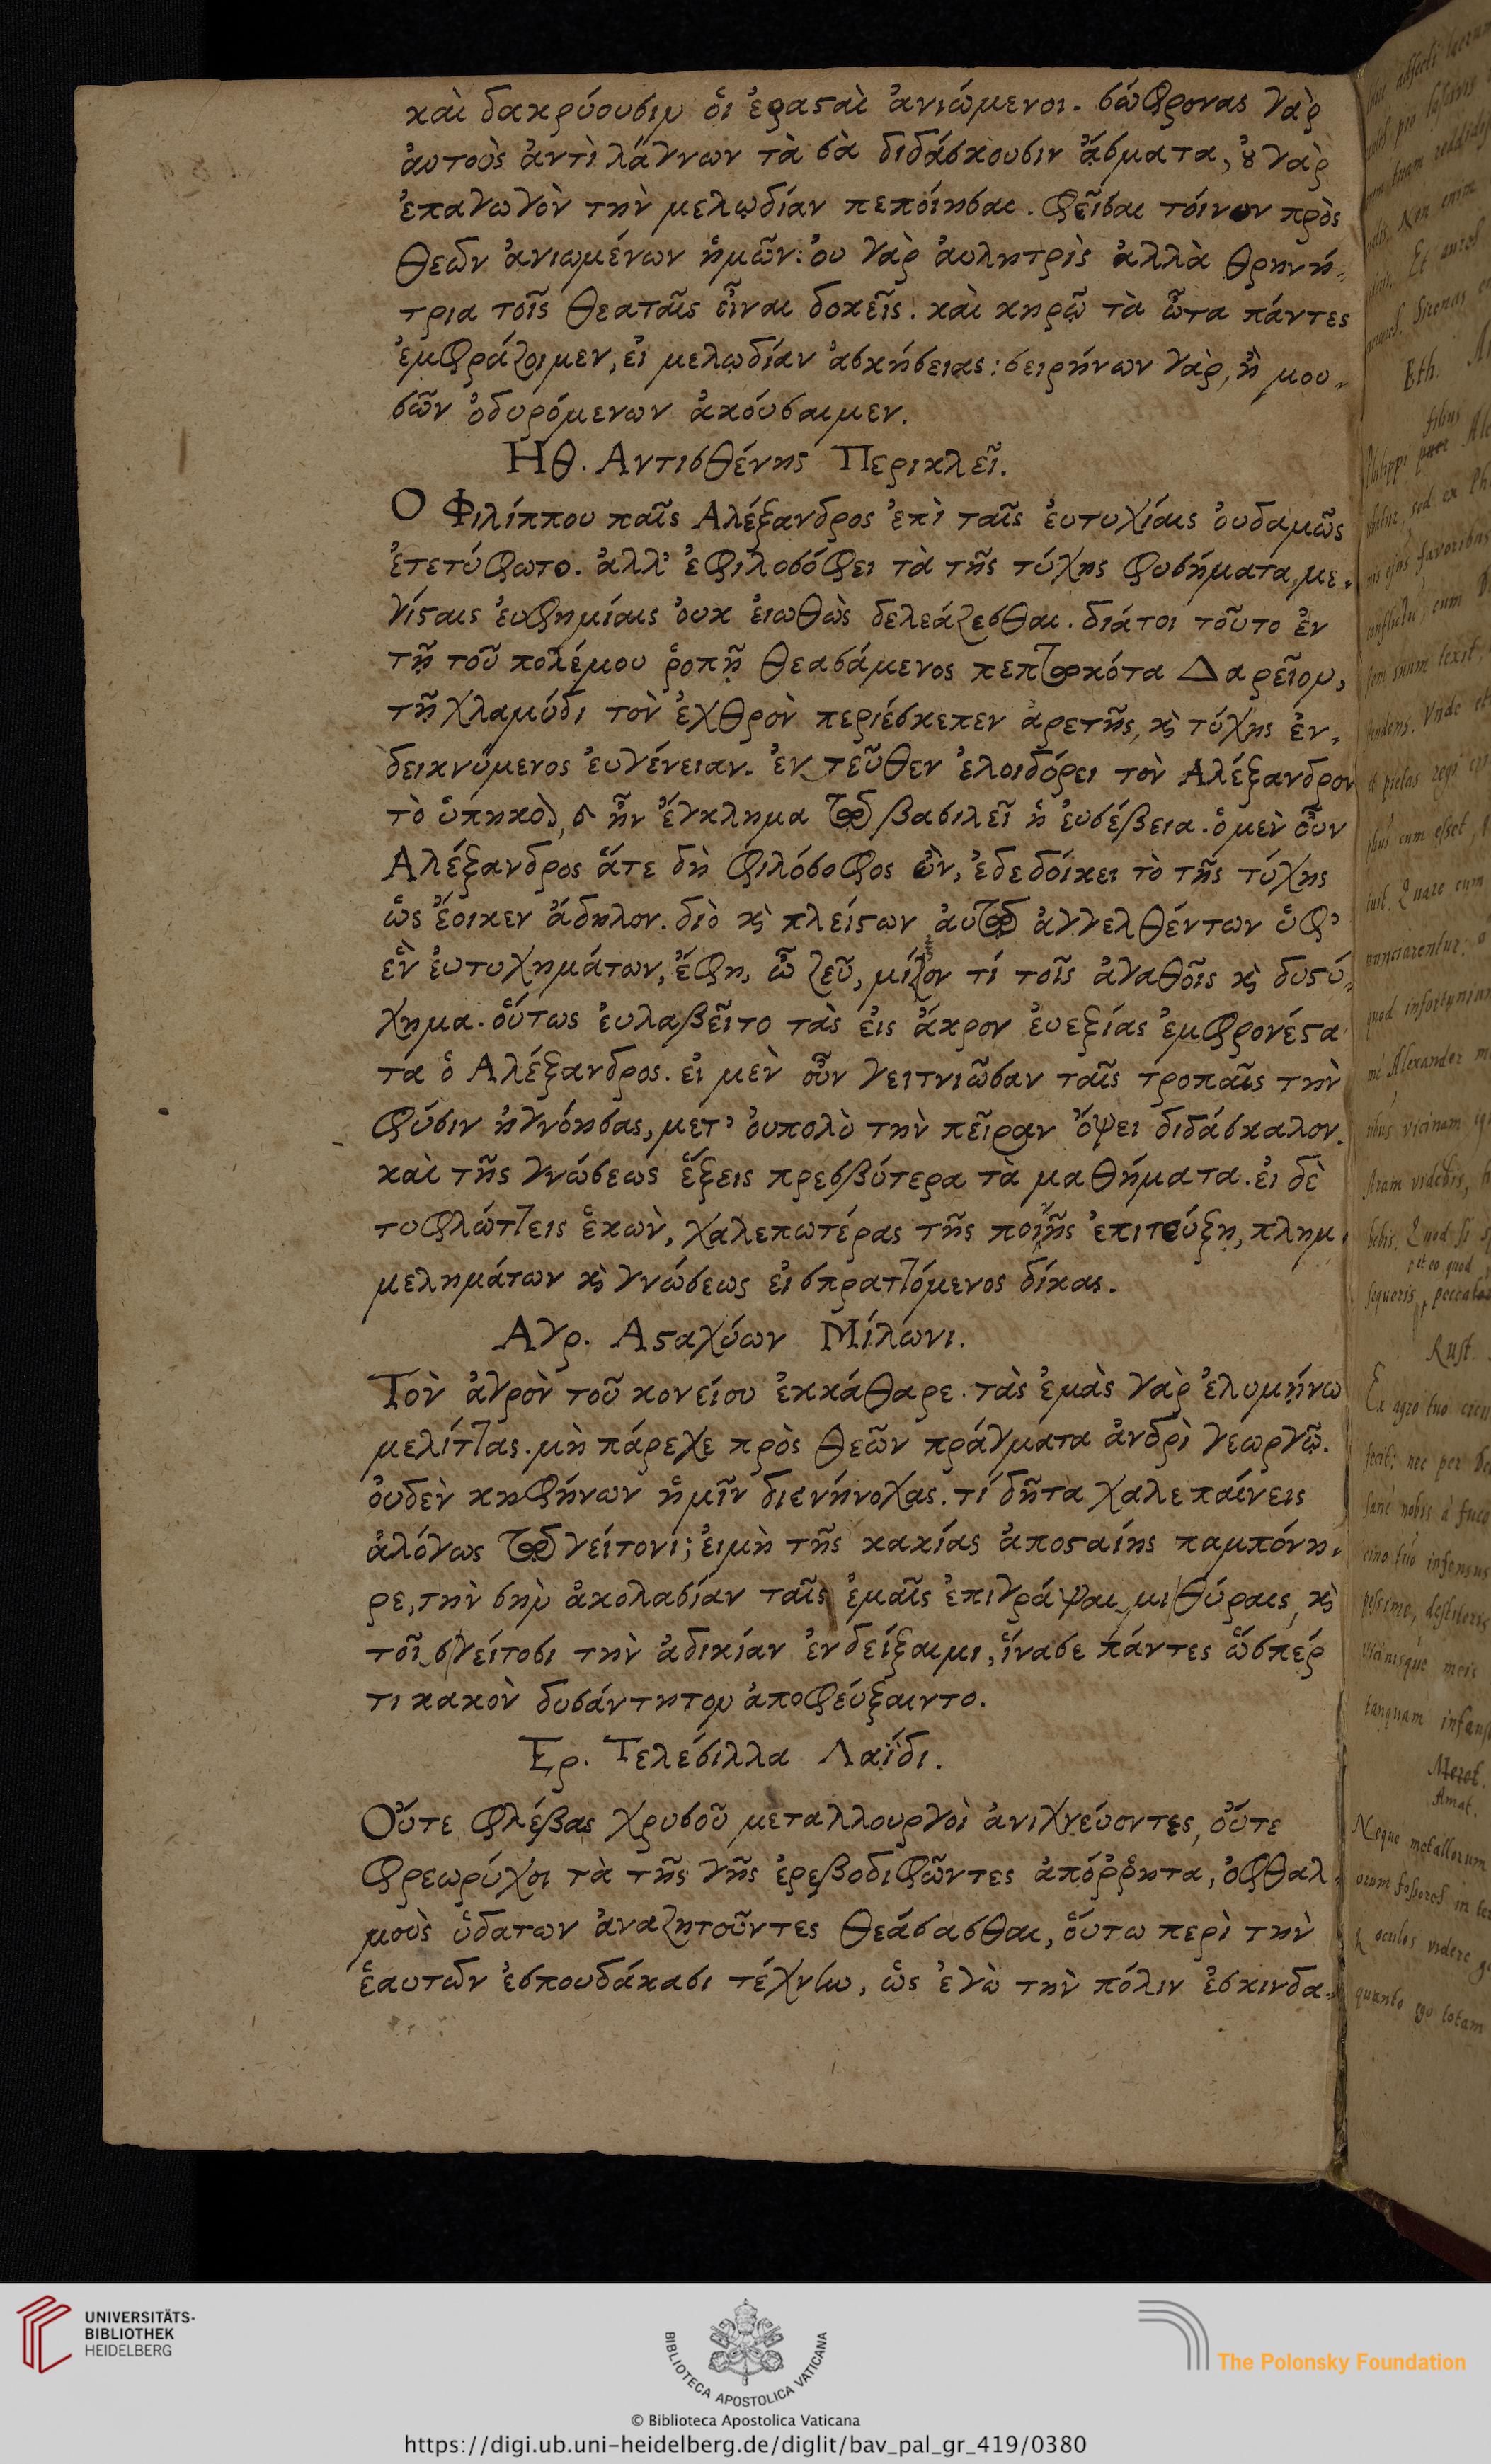 καὶ δακρύουσιν ὁι ἐρασαὶ ἀνιώμενοι. σώφρονας γὰρ
ἀυτοὺς ἀντὶ λάγνων τὰ σὰ διδάσκουσιν ἄσματα, ȣ̓ γὰρ
ἐπαγωγὸν τὴν μελῳδίαν πεποίησαι. φεῖσαι τόινυν πρὸς
θεῶν ἀνιωμένων ἡμῶν: ὀυ γὰρ ἀυλητρὶς ἀλλὰ θρηνή-
τρια τοῖς θεαταῖς εἶναι δοκεῖς. καὶ κηρῷ τὰ ὦτα πάντες
ἐμφράζοιμεν, ἐι μελῳδίαν ἀσκήσειας: σειρήνων γὰρ, ἢ μου-
σῶν ὀδυρόμενων ἀκόυσαιμεν.
Ηθ. Αντισθένης Περικλεῖ.
Ο Φιλίππου παῖς Αλέξανδρος ἐπὶ ταῖς ἐυτυχίαις ὀυδαμῶς
ἐτετύφωτο. ἀλλ' ἐφιλοσόφει τὰ τῆς τύχης φυσήματα, με-
γίσαις ἐυφημίαις ὀυκ ἐιωθὼς δελεάζεσθαι. διάτοι τοῦτο ἐν
τῇ τοῦ πολέμου ῥοπῇ θεασάμενος πεπτωκότα Δαρεῖον,
τῇ χλαμύδι τὸν ἐχθρὸν περιέσκεπεν ἀρετῆς, ϗ τύχης ἐν-
δεικνύμενος ἐυγένειαν. ἐν τεῦθεν ἐλοιδόρει τὸν Αλέξανδρον
τὸ ὑπήκοον, ϗ ἦν ἔγκλημα τῷ βασιλεῖ ἡ ἐυσέβεια. ὁ μὲν οὖν
Αλέξανδρος ἅτε δὴ φιλόσοφος ὢν, ἐδεδόικει τὸ τῆς τύχης
ὡς ἔοικεν ἄδηλον. διὸ ϗ πλείσων ἀυτῷ ἀγγελθέντων ὑφ'
ἓν ἐυτυχημάτων, ἔφη, ὦ ζεῦ, μίξον τί τοῖς ἀγαθοῖς ϗ δυσύ-
χημα. ὅυτως ἐυλαβεῖτο τὰς ἐις ἄκρον ἐυεξίας ἐμφρονέσα
τα ὁ Αλέξανδρος. ἐι μὲν οὖν γειτνιῶσαν ταῖς τροπαῖς τὴν
φύσιν ἠγνόησας, μετ' ὀυπολὺ τὴν πεῖραν ὄψει διδάσκαλον.
καὶ τῆς γνώσεως ἕξεις πρεσβύτερα τὰ μαθήματα. ἐι δὲ
τυφλώττεις ἑκὼν, χαλεπωτέρας τῆς ποινῆς ἐπιτεύξῃ, πλημ-
μελημάτων ϗ γνώσεως ἐισπραττόμενος δίκας.
Αγρ. Ασαχύων Μίλωνι.
Τὸν ἀγρὸν τοῦ κονείου ἐκκάθαρε. τὰς ἐμὰς γὰρ ἐλυμήνω
μελίττας. μὴ πάρεχε πρὸς θεῶν πράγματα ἀνδρὶ γεωργῷ.
ὀυδὲν κηφήνων ἡμῖν διενήνοχας. τί δῆτα χαλεπαίνεις
ἀλόγως τῷ γείτονι; ἐιμὴ τῆς κακίας ἀποσαίης παμπόνη-
ρε, τὴν σὴν ἀκολασίαν ταῖς ἐμαῖς ἐπιγράψαιμι θύραις, ϗ
τοῖς γείτοσι τὴν ἀδικίαν ἐνδείξαιμι, ἵνασε πάντες ὥσπέρ
τι κακὸν δυσάντητον ἀποφεύξαιντο.
Ερ. Τελέσιλλα Λαΐδι.
Οὔτε φλέβας χρυσοῦ μεταλλουργοὶ ἀνιχνεύοντες, οὔτε
φρεωρύχοι τὰ τῆς γῆς ἐρεβοδιφῶντες ἀπόῤῥητα, ὀφθαλ-
μοὺς ὑδατων ἀναζητοῦντες θεάσασθαι, ὅυτω περὶ τὴν
ἑαυτῶν ἐσπουδάκασι τέχνην, ὡς ἐγὼ τὴν πόλιν ἐσκινδα-
Eth.
Rust.
Amat.
Neque metallorum
UNIVERSITÄTS-
BIBLIOTHEK
HEIDELBERG
BIBLIOTECA APOSTOLICA VATICANA
The Polonsky Foundation
© Biblioteca Apostolica Vaticana
https://digi.ub.uni-heidelberg.de/diglit/bav_pal_gr_419/0380